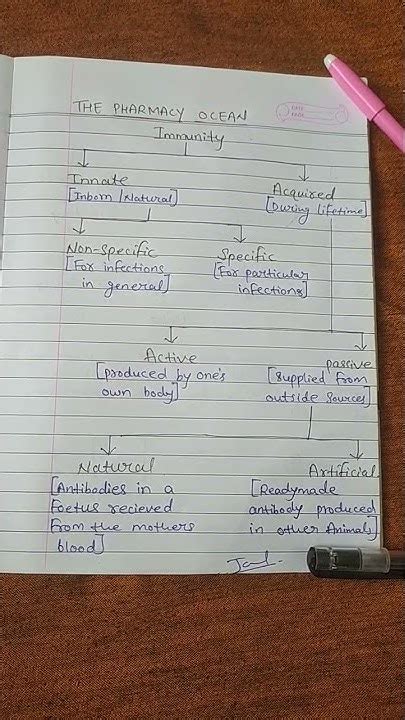 THE PHARMACY OCEAN
DATE
PAGE
Immunity
Innate
[Inborn/Natural]
Acquired
[During lifetime]
Non-Specific
[For infections
in general]
Specific
[For particular
infections]
Active
[produced by one's
own body]
passive
[supplied from
outside sources]
Natural
[Antibodies in a
Foetus recieved
from the mothers
blood]
Artificial
[Readymade
antibody produced
in other Animals]